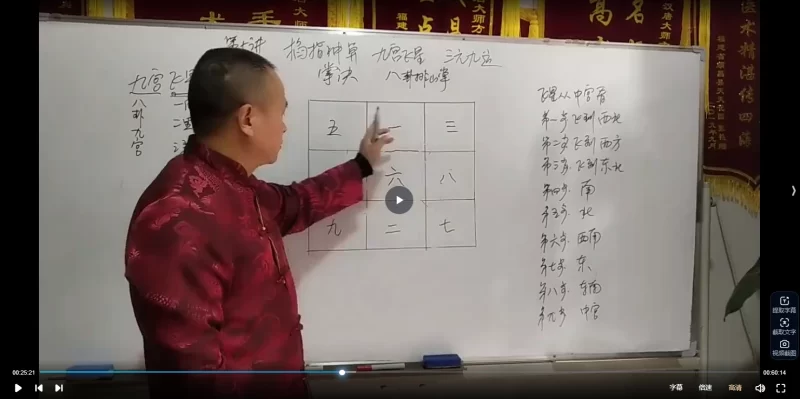 第七讲 掐指神算 九宫飞星 三元九运
掌决 八卦排山掌
九宫飞星
八卦九宫
一
二
五 一 三
六 八
九 二 七
飞星从中宫看
第一步飞到西北
第二步飞到西方
第三步飞到东北
第四步 南
第五步 北
第六步 西南
第七步 东
第八步 东南
第九步 中宫
大师
福建
名
高
医术精湛传四海
00:25:21
00:60:14
字幕 倍速 高清
提取字幕
截取文字
视频截图